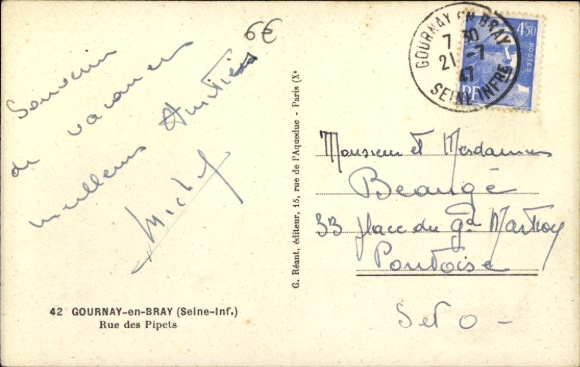 6€
Souvenir
de vacances
meilleures Amitiés
Michel
42 GOURNAY-en-BRAY (Seine-Inf.)
Rue des Pipets
G. Réant, éditeur, 15, rue de l'Aqueduc - Paris (Xe
GOURNAY EN BRAY
7 30
21 - 7
47
SEINE INFRE
4F50
POSTES
Monsieur et Mesdames
Beaugé
33 place du Gd Martroy
Pontoise
S et O -